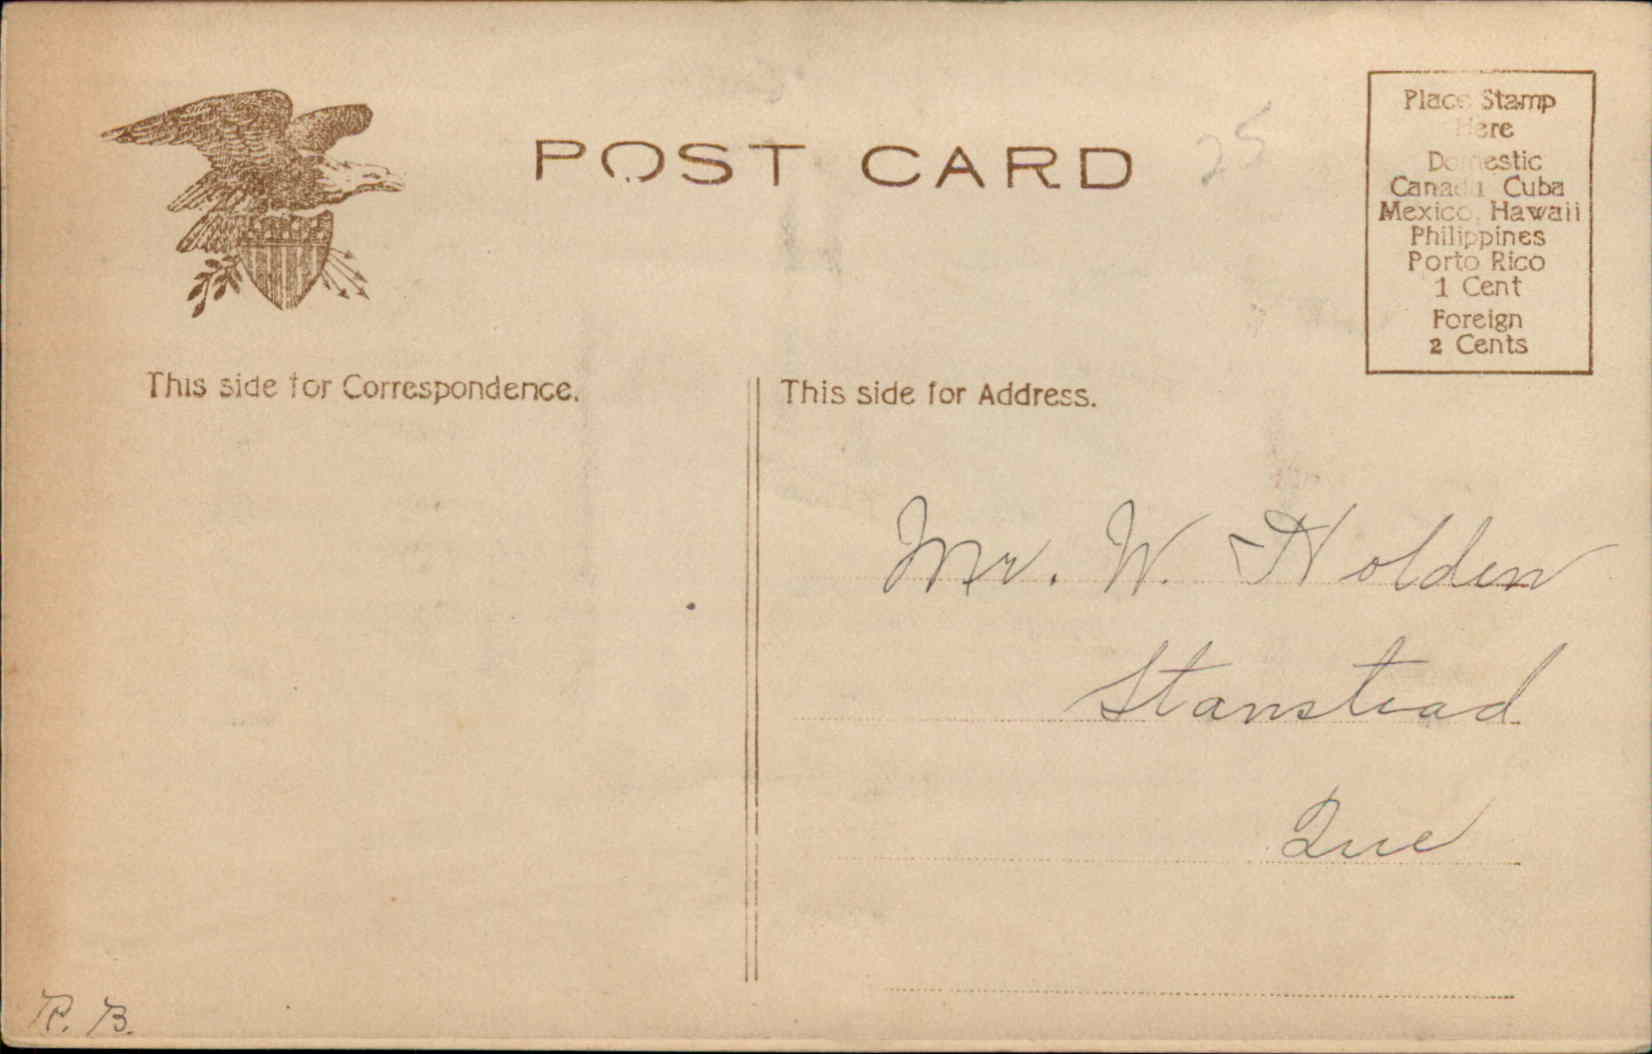 POST CARD
25
Place Stamp
Here
Domestic
Canada Cuba
Mexico, Hawaii
Philippines
Porto Rico
1 Cent
Foreign
2 Cents
This side for Correspondence.
This side for Address.
Mr. W. Holden
Stanstead
Que
R. B.